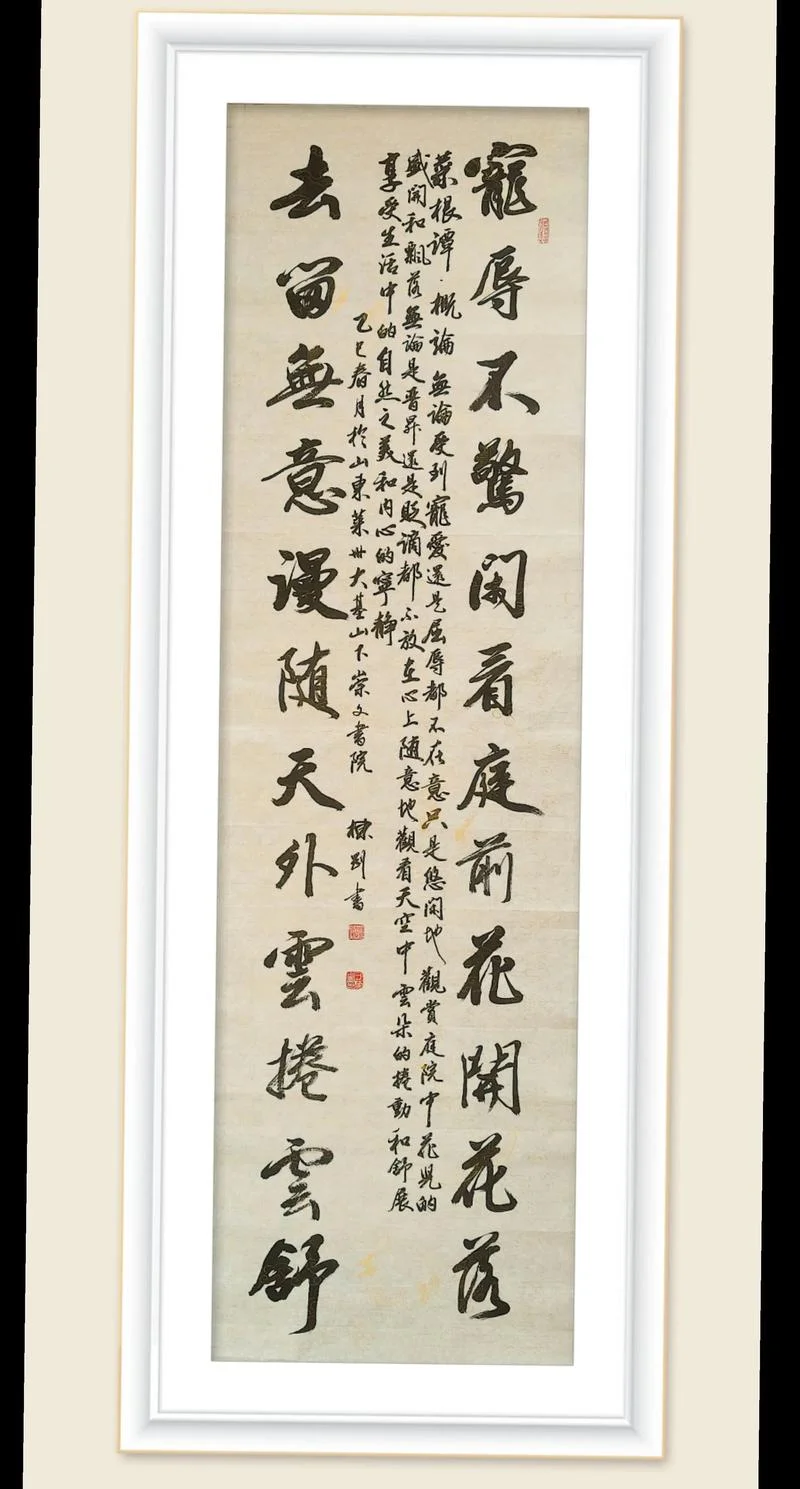 寵辱不驚閑看庭前花開花落
菜根譚·概論 無論受到寵愛還是屈辱都不在意只是悠閑地觀賞庭院中花兒的
盛開和飄落無論是晋昇還是貶謫都不放在心上随意地觀看天空中雲朵的捲動和舒展
享受生活中的自然之美和内心的寧静
乙巳春月於山東萊州大基山下崇文書院 書
去留無意漫随天外雲捲雲舒